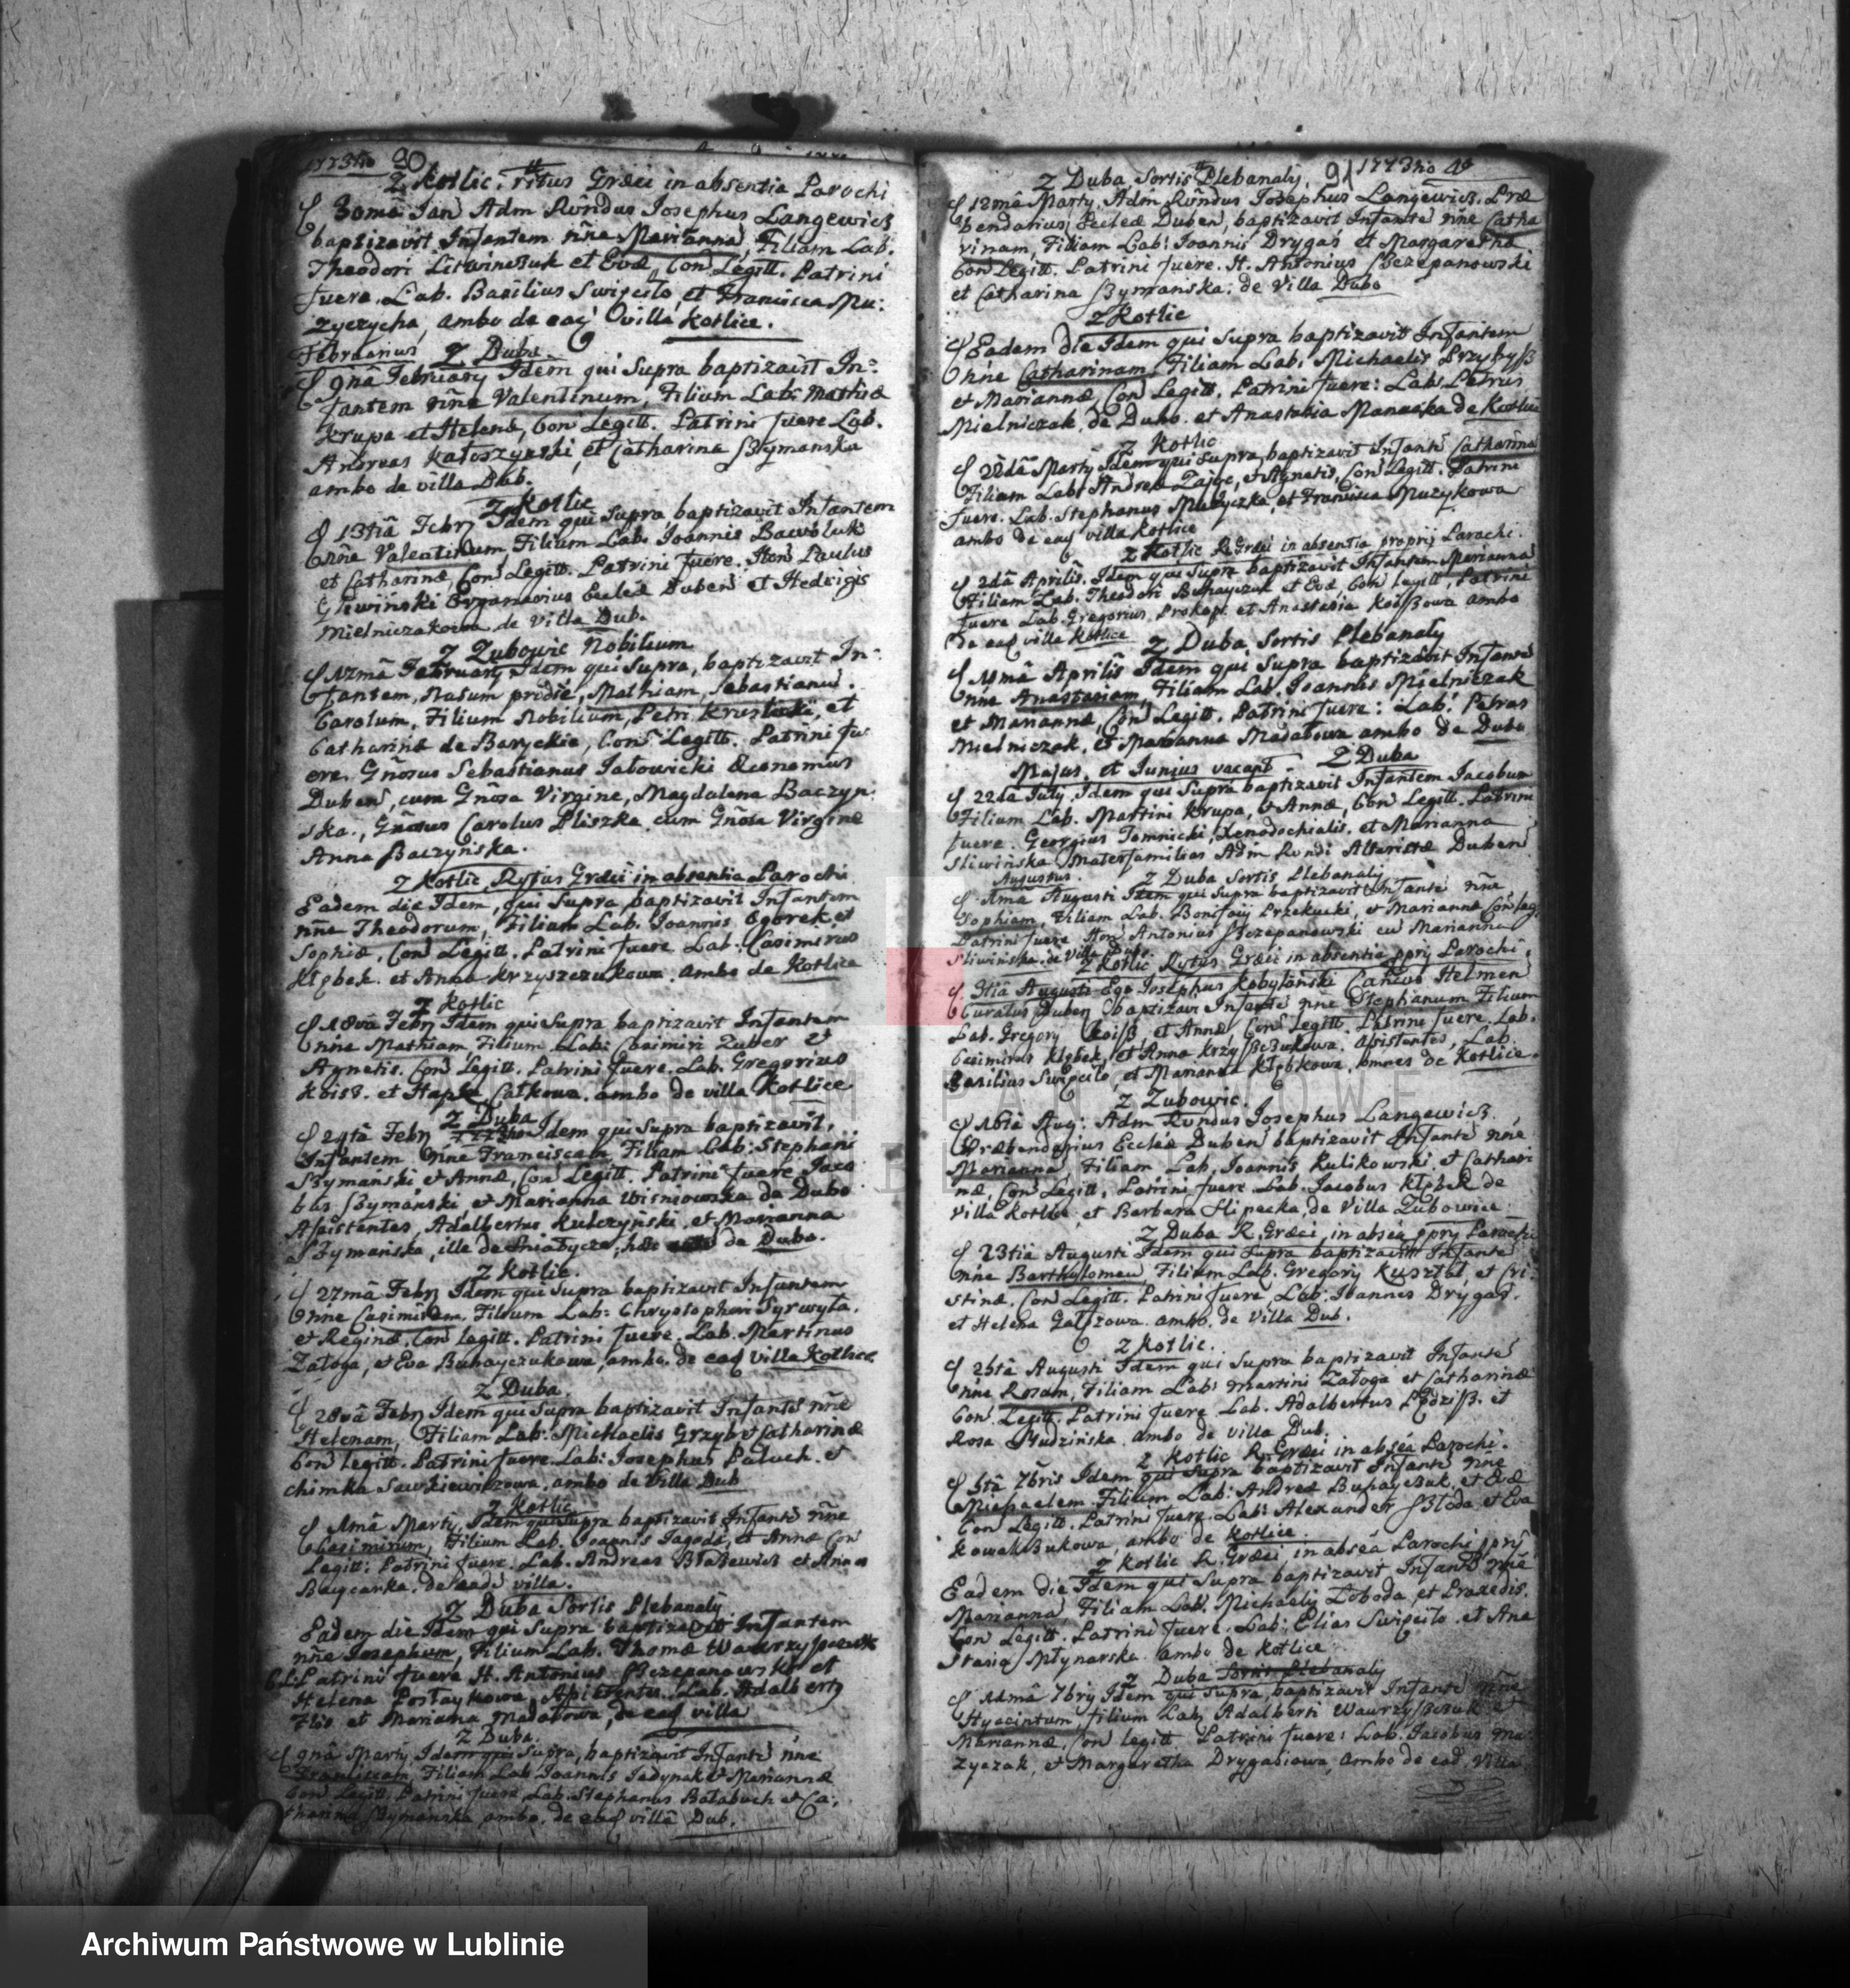 1773tio 90
Z Kotlic, ritus Græci in absentia Parochi
30mâ Jan Adm Rñdus Josephus Langewicz
baptizavit Infantem nñe Mariannã, Filiam Lab.
Theodori Litwinczuk et Evæ, Con Legitt. Patrini
fuere. Lab. Basilius Swiscilo, et Francisca Mu:
zyczycha, ambo de eaq villa Kotlice.
Februarius Z Duba.
9nâ February Idem qui Supra baptizavit In:
fantem nñe Valentinum, Filium Lab: Mathiæ
Krupa et Helenæ, Con Legitt. Patrini fuere Lab.
Andreas et Catharina Szymanska
ambo de villa Dub.
Z Kotlic
13tiâ Febry Idem qui Supra baptizavit Infantem
nñe Valentinum Filium Lab: Joannis
et Catharinæ, Con Legitt. Patrini fuere. Hon Paulus
Organarius Eccleæ Duben et Hedvigis
Mielniczakowa de villa Dub.
Z Zubowic Nobilium
17mâ February Idem qui Supra, baptizavit In:
fantem, natum pridie, Mathiam, Sebastianũ.
Carolum, Filium Nobilium, Petri et
Catharinæ de Baryckie, Con Legitt. Patrini fu
ere. Gñosus Sebastianus Jałowicki Œconomus
Duben, cum Gñosa Virgine, Magdalena Baczyn:
ska., Gñosus Carolus Pliszka cum Gñosa Virgine
Anna Baczyńska.
Z Kotlic, Rytus Græci in absentia Parochi
Eadem die Idem, qui Supra baptizavit Infantem
nñe Theodorum, Filium Lab. Joannis Ogorek et
Sophiæ, Con Legitt. Patrini fuere Lab: Casimirus
Kłębek. et Anna Krzyszczukowa ambo de Kotlice
Z Kotlic
18vâ Febry Idem qui Supra baptizavit Infantem
nñe Mathiam, Filium Lab: Casimiri Zuber et
Agnetis. Con Legitt. Patrini fuere. Lab. Gregorius
Koisz. et ambo de villa Kotlice
Z Duba
24tâ Febry Idem qui Supra baptizavit,
Infantem nñe Franciscam Filiam Lab: Stephani
Szymanski et Annæ, Con Legitt. Patrini fuere Jaco
bus Szymański, et Marianna Wisniowska de Dubo
Assistentes, Adalbertus Kulczyński, et Marianna
Szymańska, ille de Sniatycze, hæc de Duba.
Z Kotlic.
27mâ Febry Idem qui Supra baptizavit Infantem
nñe Casimirum, Filium Lab: Chrystophori
et Reginæ. Con legitt. Patrini fuere. Lab. Martinus
Załoga, et Eva Buhayczukowa, ambo. de eaq villa Kotlice
Z Duba.
28vâ Febry Idem qui Supra baptizavit Infantẽ nñe
Helenam, Filiam Lab: Michaelis Grzyb et Catharinæ
Con legitt. Patrini fuere Lab: Josephus Paluch. et
ambo de villa Dub
Z Kotlic
1mâ Marty. Idem qui Supra baptizavit Infantẽ nñe
Casimirum, Filium Lab. Joannis Jagoda, et Annæ Con
Legitt: Patrini fuere. Lab. Andreas Błażewicz et Anna
de eadẽ villa.
Z Duba Sortis Plebanaly
Eadem die Idem qui Supra baptizavit Infantem
nñe Josephum, Filium Lab. Thomæ
Patrini fuere H. Antonius Szczepanowski et
Helena Assistentes. Lab. Adalbert9
et Marianna Madałowa, de eaq villa
Z Duba.
9nâ Marty, Idem qui Supra, baptizavit Infantẽ nñe
Franciscam, Filiam Lab Joannis Jedynak et Mariannæ
Con Legitt. Patrini fuere Lab. Stephanus Bałabuch et Ca:
tharina Szymanska ambo. de eaq villâ Dub.
Z Duba Sortis Plebanaly. 91 1773tio Ao
12mâ Marty, Adm Rñdus Josephus Langewicz. Præ
bendarius Eccleæ Duben, baptizavit Infantẽ nñe Catha
rinam, Filiam Lab: Joannis Drygas et Margarethæ
Con Legitt. Patrini fuere. H. Antonius Szczepanowski
et Catharina Szymanska: de villa Dubo
Z Kotlic
Eadem die Idem qui Supra baptizavit Infantem
nñe Catharinam, Filiam Lab: Michaelis Przybysz
et Mariannæ, Con Legitt. Patrini fuere: Lab: Petrus
Mielniczak, de Dubo. et Anastasia de Kotlice
Z Kotlic
22dâ Marty Idem qui Supra baptizavit Infantẽ Catharinã
Filiam Lab: Andreæ Zając, et Agnetis, Con Legitt. Patrini
fuere. Lab. Stephanus Muzyczka, et Francisca Muzykowa
ambo de eaq villa Kotlice
Z Kotlic R. Græci in absentia proprij Parochi.
2dâ Aprilis. Idem qui Supra baptizavit Infantem Mariannã
Filiam Lab: Theodori Buhayczuk et Evæ, Con Legitt, Patrini
fuere Lab: Gregorius Prokop. et Anastasia Koiszowa ambo
de eaq villa Kotlice Z Duba Sortis Plebanaly
Aprilis Idem qui Supra baptizavit Infantẽ
nñe Anastasiam, Filiam Lab. Joannis Mielniczak
et Mariannæ, Con Legitt. Patrini fuere: Lab: Petrus
Mielniczak, et Marianna Madałowa ambo de Duba
Majus, et Junius vacant Z Duba
22da July. Idem qui Supra baptizavit Infantem Jacobum
Filium Lab. Martini Krupa, et Annæ, Con Legitt. Patrini
fuere. Georgius Tomnicki, Xenodochialis. et Marianna
Sliwińska Materfamilias Adm Rvndi Altaristæ Duben
Augustus. Z Duba Sortis Plebanaly
1mâ Augusti Idem qui Supra baptizavit Infantẽ nñe
Sophiam, Filiam Lab. Bonifacij et Mariannæ Con leg
Patrini fuere Hon Antonius Szczepanowski cũ Marianna
Sliwińska de Villa Dub.
Z Kotlic Rytus Græci in absentia pprij Parochi.
3tiâ Augusti Ego Josephus Kobylański Canoo Helmen
Curatus Duben baptizavi Infantẽ nñe Stephanum Filium
Lab. Gregory Koisz, et Annæ Con Legitt. Patrini fuere. Lab.
Casimirus Kłębek, et Anna Krzyszczukowa, Assistentes, Lab.
Basilius Swiscilo, et Marianna Kłębkowa, omnes de Kotlice.
Z Zubowic.
16tâ Aug: Adm Rvndus Josephus Langewicz.
Præbendarius Eccleæ Duben baptizavit Infantẽ nñe
Mariannã, Filiam Lab. Joannis Kulikowski, et Cathari
næ, Con Legitt, Patrini fuere Lab. Jacobus Kłębek de
Villa Kotlice, et Barbara Slipecka, de Villa Zubowice.
Z Duba R. Græci, in absẽa pprij Parochi
23tiâ Augusti Idem qui Supra baptizavit Infantẽ
nñe Bartholomeũ, Filium Lab. Gregory Kusztal, et Cri:
stinæ. Con Legitt. Patrini fuere, Lab: Joannes Drygas.
et Helena ambo. de Villa Dub.
Z Kotlic.
Augusti Idem qui Supra baptizavit Infantẽ
nñe Rosam, Filiam Lab: Martini Załoga et Catharinæ
Con Legitt. Patrini fuere Lab. Adalbertus et
Rosa ambo de villa Dub.
Z Kotlic R. Græci in absẽa Parochi.
7bris Idem qui Supra baptizavit Infantẽ nñe
Michaelem. Filium Lab: Andreæ Buhayczuk, et Evæ
Con Legitt. Patrini fuere Lab: Alexander et Eva
Kowalczukowa, ambo de Kotlice.
Z Kotlic R. Græci, in absẽa Parochi pprij
Eadem die Idem qui Supra baptizavit Infantẽ nñe
Mariannã, Filiam Lab: Michaely Łoboda, et Praxedis.
Con Legitt. Patrini fuere Lab: Elias Swiscilo. et Ana
stasia Młynarska. ambo de Kotlice
Z Duba Sortis Plebanaly
7bry Idem qui Supra, baptizavit Infantẽ nñe
Hyacintum, Filium Lab. Adalberti et
Mariannæ, Con legitt Patrini fuere: Lab: Jacobus Mu
zyczak, et Margaretha Drygasiowa, ambo de ead. villa
Archiwum Państwowe w Lublinie